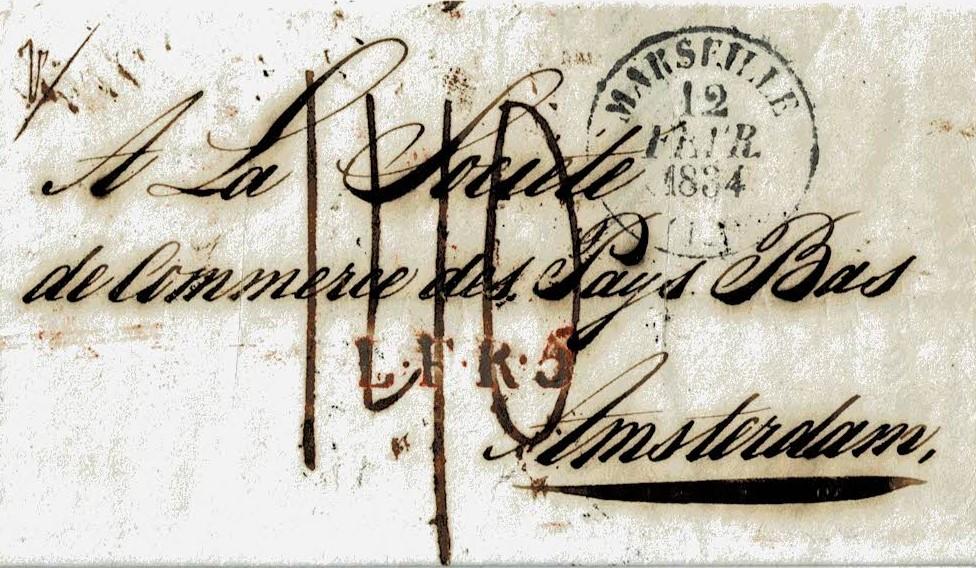 MARSEILLE
12
FEVR.
1834
A La Société
de Commerce des Pays Bas
L.F.R.5
Amsterdam,